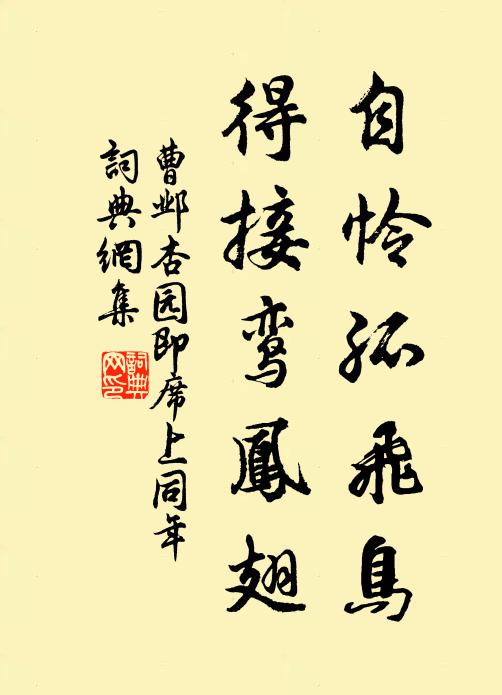 自怜孤飛鳥
得接鸾鳳翅
曹邺杏园即席上同年
詞典網集
詞典网印